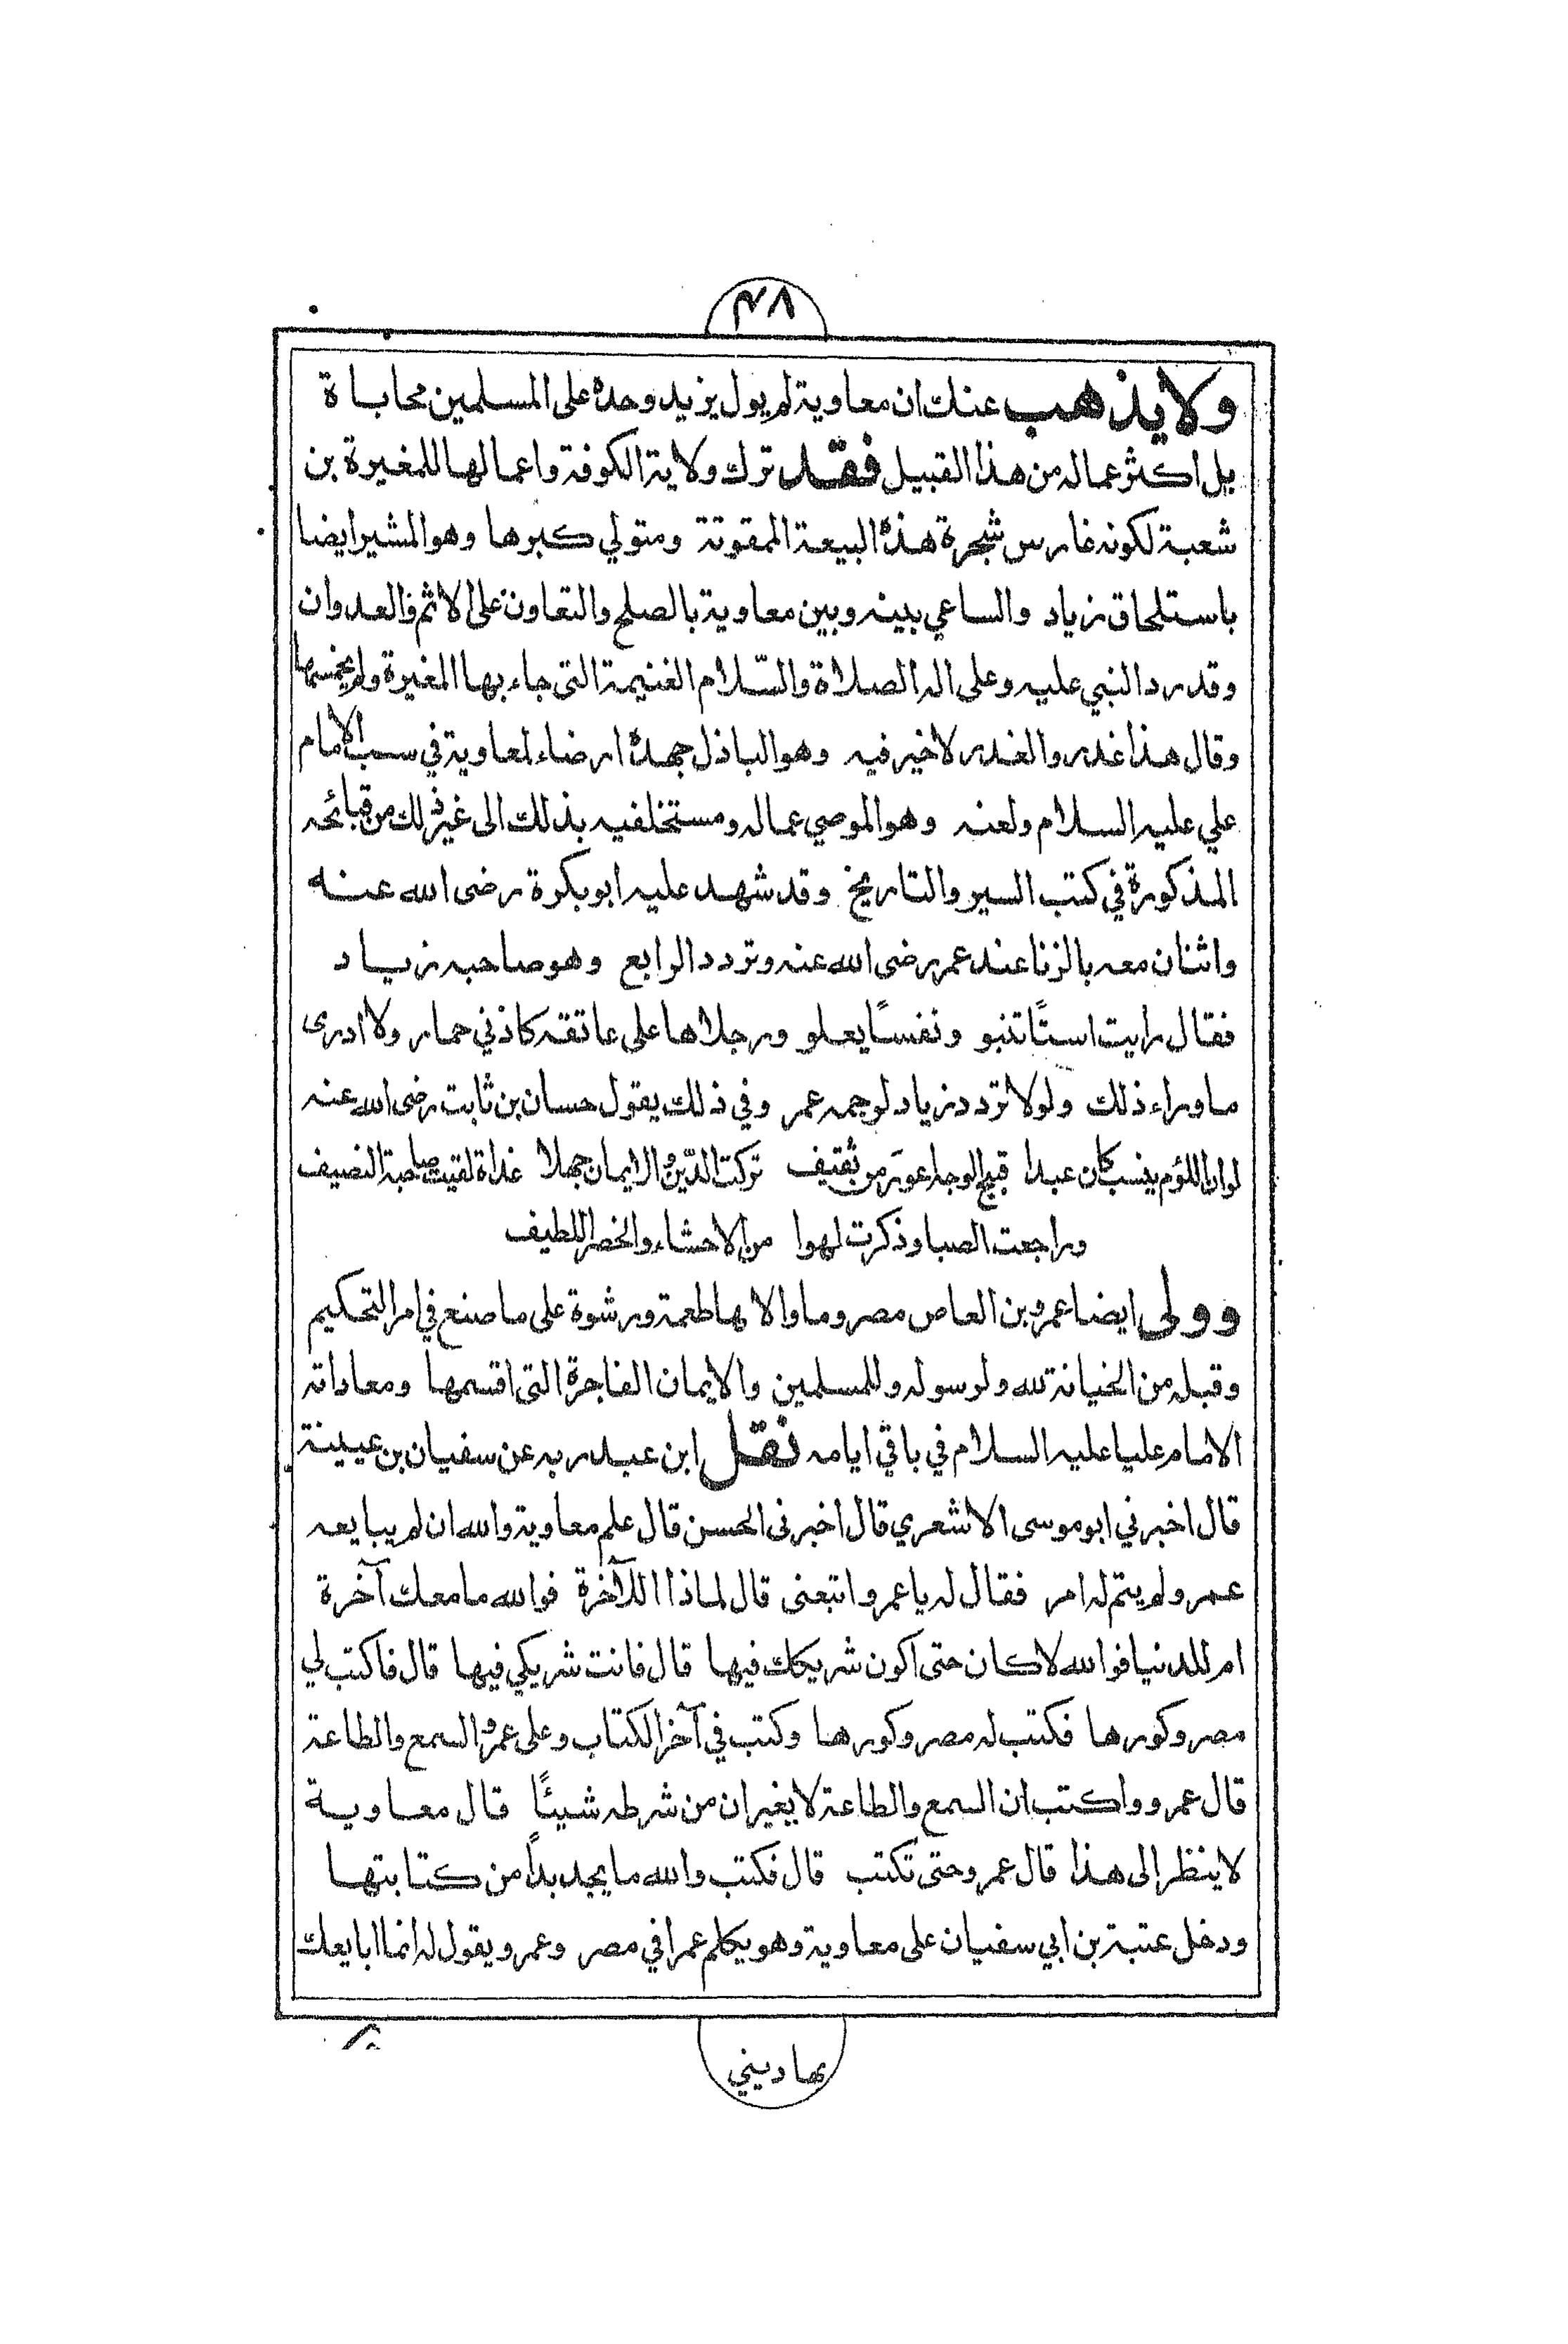 ٤٨
ولا يذهب عنك ان معاوية لم يول يزيد وحده على المسلمين محاباة
بل اكثر عماله من هذا القبيل فقد ترك ولاية الكوفة واعمالها للمغيرة بن
شعبة لكونه غارس شجرة هذه البيعة الممقوتة ومتولي كبرها وهو المشير ايضا
باستلحاق زياد والساعي بينه وبين معاوية بالصلح والتعاون على الاثم والعدوان
وقد رد النبي عليه وعلى اله الصلاة والسّلام الغنيمة التى جاء بها المغيرة ولم يخمسها
وقال هذا غدر والغدر لا خير فيه وهو الباذل جهده ارضاء لمعاوية في سب الامام
علي عليه السلام ولعنه وهو الموصي عماله ومستخلفيه بذلك الى غير ذلك من قبائحه
المذكورة في كتب السير والتاريخ وقد شهد عليه ابو بكرة رضى الله عنه
واثنان معه بالزنا عند عمر رضى الله عنه وتردد الرابع وهو صاحبه زياد
فقال رايت استًا تنبو ونفسًا يعلو ورجلاها على عاتقه كاذني حمار ولا ادرى
ما وراء ذلك ولولا تردد زياد لرجمه عمر وفي ذلك يقول حسان بن ثابت رضى الله عنه
لو ان اللؤم ينسب كان عبدا قبيح الوجه اعور من ثقيف تركت الدّين والايمان جهلا غداة لقيت صاحبة النصيف
وراجعت الصبا وذكرت لهوا من الاحشاء والخصر اللطيف
وولى ايضا عمرو بن العاص مصر وما والاها طعمة ورشوة على ما صنع في امر التحكيم
وقبله من الخيانة لله ولرسوله وللمسلمين والايمان الفاجرة التى اقسمها ومعاداته
الامام عليا عليه السلام في باقي ايامه نقل ابن عبد ربه عن سفيان بن عيينة
قال اخبرني ابو موسى الاشعري قال اخبرنى الحسن قال علم معاوية والله ان لم يبايعه
عمرو لم يتم له امر فقال له يا عمرو اتبعنى قال لماذا اللآخرة فوالله ما معك آخرة
ام للدنيا فوالله لا كان حتى اكون شريكك فيها قال فانت شريكي فيها قال فاكتب لي
مصر وكورها فكتب له مصر وكورها وكتب في آخر الكتاب وعلى عمرو السمع والطاعة
قال عمرو واكتب ان السمع والطاعة لا يغيران من شرطه شيئًا قال معاوية
لا ينظر الى هذا قال عمرو حتى تكتب قال فكتب والله ما يجد بدًا من كتابتها
ودخل عتبة بن ابي سفيان على معاوية وهو يكلم عمرا في مصر وعمرو يقول له انما ابايعك
بها ديني